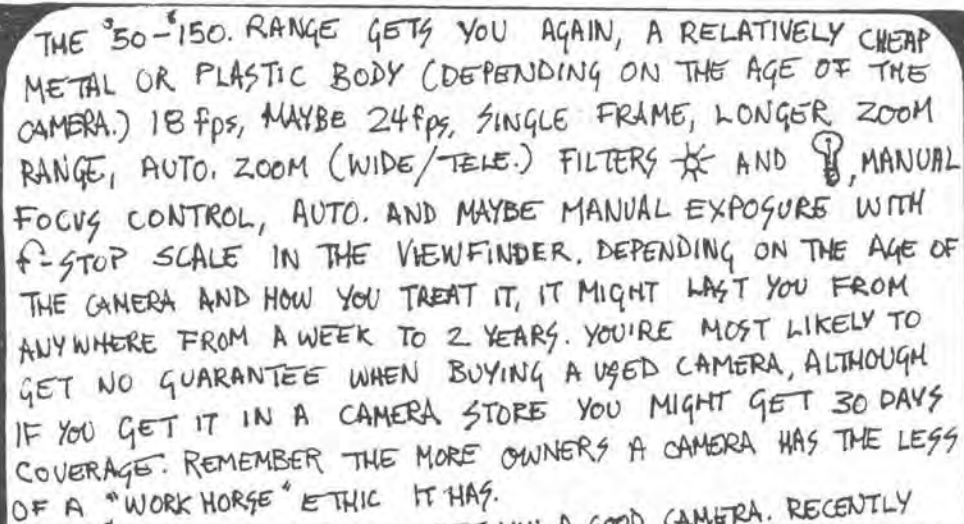 THE $50-$150. RANGE GETS YOU AGAIN, A RELATIVELY CHEAP
METAL OR PLASTIC BODY (DEPENDING ON THE AGE OF THE
CAMERA.) 18 fps, MAYBE 24 fps, SINGLE FRAME, LONGER ZOOM
RANGE, AUTO. ZOOM (WIDE/TELE.) FILTERS AND , MANUAL
FOCUS CONTROL, AUTO. AND MAYBE MANUAL EXPOSURE WITH
f-STOP SCALE IN THE VIEWFINDER. DEPENDING ON THE AGE OF
THE CAMERA AND HOW YOU TREAT IT, IT MIGHT LAST YOU FROM
ANYWHERE FROM A WEEK TO 2 YEARS. YOU'RE MOST LIKELY TO
GET NO GUARANTEE WHEN BUYING A USED CAMERA, ALTHOUGH
IF YOU GET IT IN A CAMERA STORE YOU MIGHT GET 30 DAYS
COVERAGE. REMEMBER THE MORE OWNERS A CAMERA HAS THE LESS
OF A "WORK HORSE" ETHIC IT HAS.
A GOOD CAMERA. RECENTLY